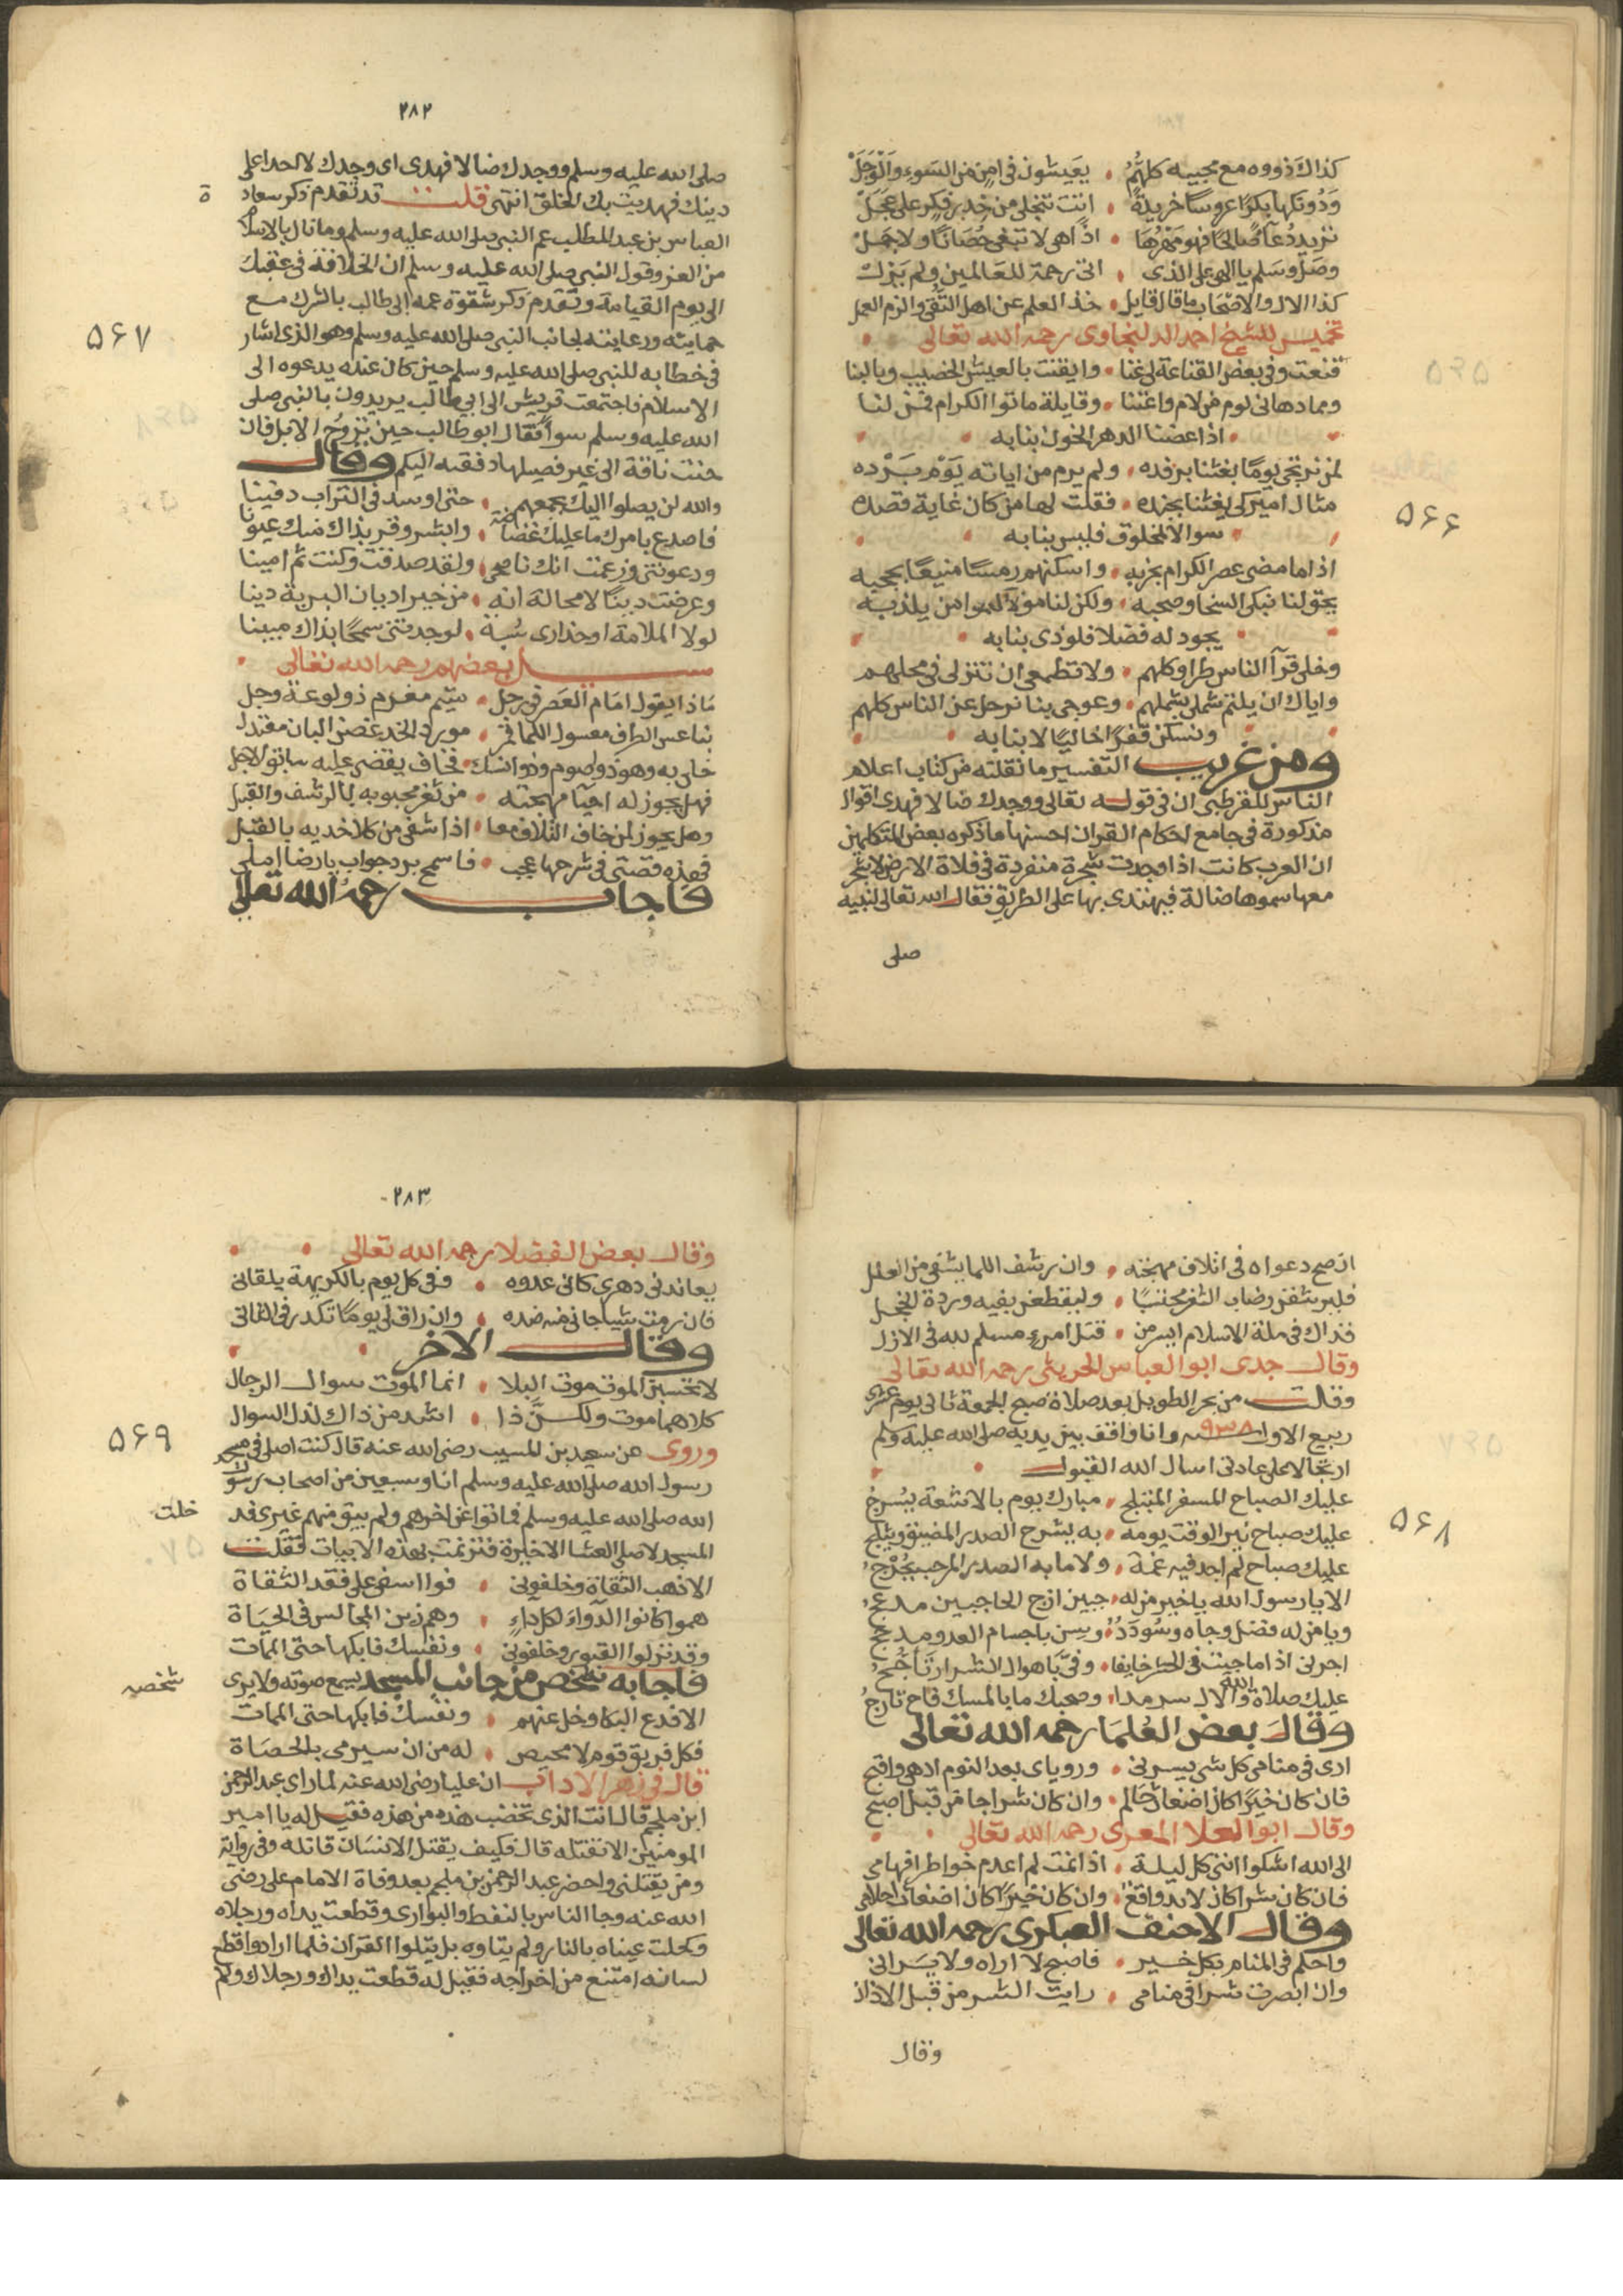 كذاك ذووه مع محبيه كلهم • يعيشون في امن من السوء والوجل
ودونكها بكرا عروسا خريدة • اتت تنجلي من خدر فكر على عجل
تريد دعآ صالحا فهو مهرها • اذا هي لا تبغي حصانا ولا جمل
وصل وسلم يا الهي على الذي • اتى رحمة للعالمين ولم يزل
كذا الال والاصحاب ما قال قايل • خذ العلم عن اهل التقى والزم العمل
تخميس للشيخ احمد الدلنجاوي رحمه الله تعالى
قنعت وفي بعض القناعة لي غنا • وايقنت بالعيش الخصيب وبالهنا
ومما دهاني لوم من لام واعتنا • وقايلة ماتوا الكرام فمن لنا
اذا عضنا الدهر الخون بنابه
لمن نرتجي يوما يغثنا برفده • ولم يرم من اياته يوم برده
مثال امير كي يغثنا بجنده • فقلت لها من كان غاية قصده
٥٦٦
سوالا لمخلوق فليس بنابه
اذا ما مضى عصر الكرام بحزبه • واسكنهم رمسا منيعا بحجبه
يحق لنا نبكي السخا وصحبه • ولكن لنا مولا من يلذ به
يجود له فضلا فلوذي بنابه
وخلي قرآ الناس طرا وكلهم • ولا تطمعي ان تنزلي في محلهم
واياك ان يلتم شملي بشملهم • وعوجي بنا نرحل عن الناس كلهم
ونسكن قفرا خاليا لا بنا به
ومن غريب التفسير ما نقلته من كتاب اعلام
الناس للقرطبي ان في قوله تعالى ووجدك ضالا فهدى اقوال
مذكورة في جامع احكام القران احسنها ما ذكره بعض المتكلمين
ان العرب كانت اذا وجدت شجرة منفردة في فلاة الارض لا شجر
معها سموها ضالة فيهتدى بها على الطريق فقال الله تعالى لنبيه
صلى
٢٨٢
صلى الله عليه وسلم ووجدك ضالا فهدى اي وجدك لا احد على
دينك فهديت بك الخلق انتهى قلت قد تقدم ذكر سعاد
ة
العباس بن عبد المطلب عم النبي صلى الله عليه وسلم وما نال بالاسلام
من العز وقول النبي صلى الله عليه وسلم ان الخلافة في عقبك
الى يوم القيامة وتقدم ذكر شقوة عمه ابي طالب بالشرك مع
حمايته ورعايته لجانب النبي صلى الله عليه وسلم وهو الذي اشار
٥٦٧
في خطابه للنبي صلى الله عليه وسلم حين كان عنده يدعوه الى
الاسلام فاجتمعت قريش الى ابي طالب يريدون بالنبي صلى
الله عليه وسلم سوأ فقال ابو طالب حين تروح الابل فان
حنت ناقة الى غير فصيلها دفعته اليكم وقال
والله لن يصلوا اليك بجمعهم • حتى اوسد في التراب دفينا
فاصدع بامرك ما عليك غضاضة • وابشر وقر بذاك منك عيونا
ودعوتني وزعمت انك ناصحي • ولقد صدقت وكنت ثم امينا
وعرضت دينا لا محالة انه • من خير اديان البرية دينا
لولا الملامة او حذاري سبة • لوجدتني سمحا بذاك مبينا
سئل بعضهم رحمه الله تعالى
ماذا يقول امام العصر في رجل • متيم مغرم ذو لوعة وجل
بناعس الطرف معسول اللما قمر • مورد الخد غصن البان معتدل
خلي به وهو ذو صوم وذو نسك • فخاف يقضى عليه سابق الاجل
فهل يجوز له احيآ مهجته • من ثغر محبوبه بالرشف والقبل
وهل يجوز لمن خاف التلاف معا • اذا شفى من كلا خديه بالقبل
فهذه قصتي في شرحها عجب • فاسمح برد جواب يا رضا املي
فاجاب رحمه الله تعالى
ان صح دعواه في اتلاف مهجته • وان رشف اللما يشفي من العلل
فليرتشف من رضاب الثغر مجتنبا • وليقطفن بفيه وردة الخجل
فذاك في ملة الاسلام ايسر من • قتل امرء مسلم لله في الازل
وقال جدي ابو العباس الحريثي رحمه الله تعالى
وقلت من بحر الطويل بعد صلاة صبح الجمعة ثاني يوم عشري
ربيع الاول سنه ٩٣٨ وانا واقف بين يديه صلى الله عليه وسلم
ارتجالا على عادتي اسال الله القبول
عليك الصباح المسفر المتبلج • مبارك يوم بالاشعة يسرج
عليك صباح نير الوقت يومه • به يشرح الصدر المضيق ويثلج
٥٦٨
عليك صباح لم اجد فيه غمة • ولا ما به الصدر المرحب يحرج
الا يا رسول الله يا خير من له • جبين ازج الحاجبين مدعج
ويا من له فضل وجاه وسودد • باجسام العدو مدجج
اجرني اذا ما جيت في الحشر خايفا • وفي باهوال الشرار تأجج
عليك صلاة الله والال سرمدا • وصحبك ما بالمسك فاح تارج
وقال بعض العلما رحمه الله تعالى
ارى في منامي كل شي يسرني • وروياي بعد النوم ادهى واقبح
فان كان خيرا كان اضغاث حالم • وان كان شرا جا من قبل اصبح
وقال ابو العلا المعري رحمه الله تعالى
الى الله اشكو انني كل ليلة • اذا نمت لم اعدم خواطر افهامي
فان كان شرا كان لابد واقع • وان كان خيرا كان اضغاث احلامي
وقال الاحنف العبكري رحمه الله تعالى
واحكم في المنام بكل خير • فاصبح لا اراه ولا يراني
وان ابصرت شرا في منامي • رايت الشر من قبل الاذان
وقال
٢٨٣
وقال بعض الفضلا رحمه الله تعالى
يعاندني دهري كاني عدوه • وفي كل يوم بالكريهة يلقاني
فان رمت شيا جاني منه ضده • وان راق لي يوما تكدر في الثاني
وقال الاخر
لا تحسبن الموت موت البلا • انما الموت سوال الرجال
كلاهما موت ولكن ذا • اشد من ذاك لذل السوال
وروى عن سعيد بن المسيب رضي الله عنه قال كنت اصلي في مسجد
٥٦٩
رسول الله صلى الله عليه وسلم انا وسبعين من اصحاب رسول
الله صلى الله عليه وسلم فماتوا عن اخرهم ولم يبق منهم غيري فد
خلت
المسجد لاصلي العشا الاخيرة فترنمت بهذه الابيات فقلت
الا ذهب الثقاة وخلفوني • فوا اسفي على فقد الثقاة
هموا كانوا الدواء لكل داء • وهم زين المجالس في الحياة
وقد نزلوا القبور وخلفوني • ونفسك فابكها حتى الممات
فاجابه شخص من جانب المسجد يسمع صوته ولا يرى
شخصه
الا فدع البكا وخل عنهم • ونفسك فابكها حتى الممات
فكل فريق قوم لا محيص • له من ان سيرمى بالحصاة
قال في زهر الاداب ان عليا رضي الله عنه لما راى عبد الرحمن
ابن ملجم قال انت الذي تخضب هذه من هذه فقيل له يا امير
المومنين الا تقتله قال فكيف يقتل الانسان قاتله وفي رواية
ومن يقتلني واحضر عبد الرحمن بن ملجم بعد وفاة الامام علي رضي
الله عنه وجا الناس بالنفط والبواري وقطعت يداه ورجلاه
وكحلت عيناه بالنار ولم يتاوه بل يتلوا القران فلما ارادوا قطع
لسانه امتنع من اخراجه فقيل له قطعت يداك ورجلاك ولم